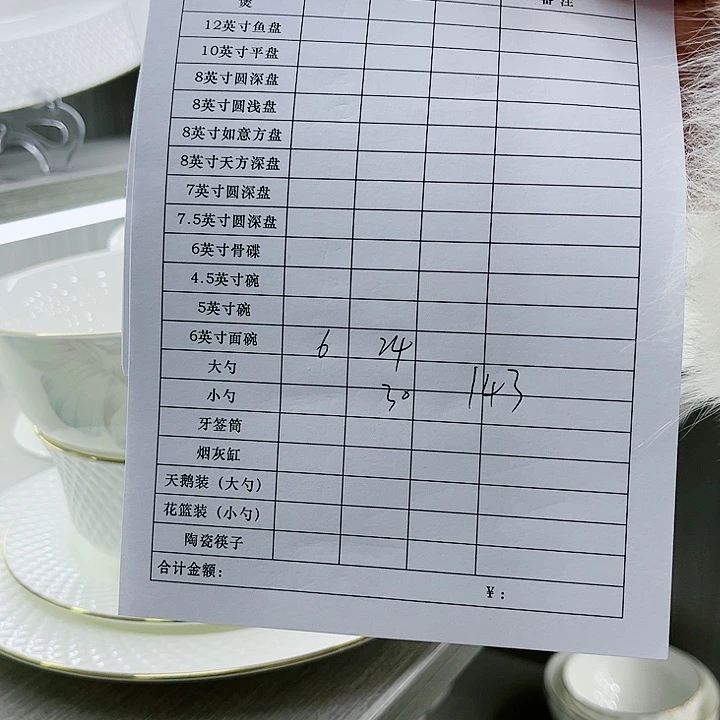 煲 备注
12英寸鱼盘
10英寸平盘
8英寸圆深盘
8英寸圆浅盘
8英寸如意方盘
8英寸天方深盘
7英寸圆深盘
7.5英寸圆深盘
6英寸骨碟
4.5英寸碗
5英寸碗
6英寸面碗 6 24
大勺
小勺 30 143
牙签筒
烟灰缸
天鹅装（大勺）
花篮装（小勺）
陶瓷筷子
合计金额： ￥：